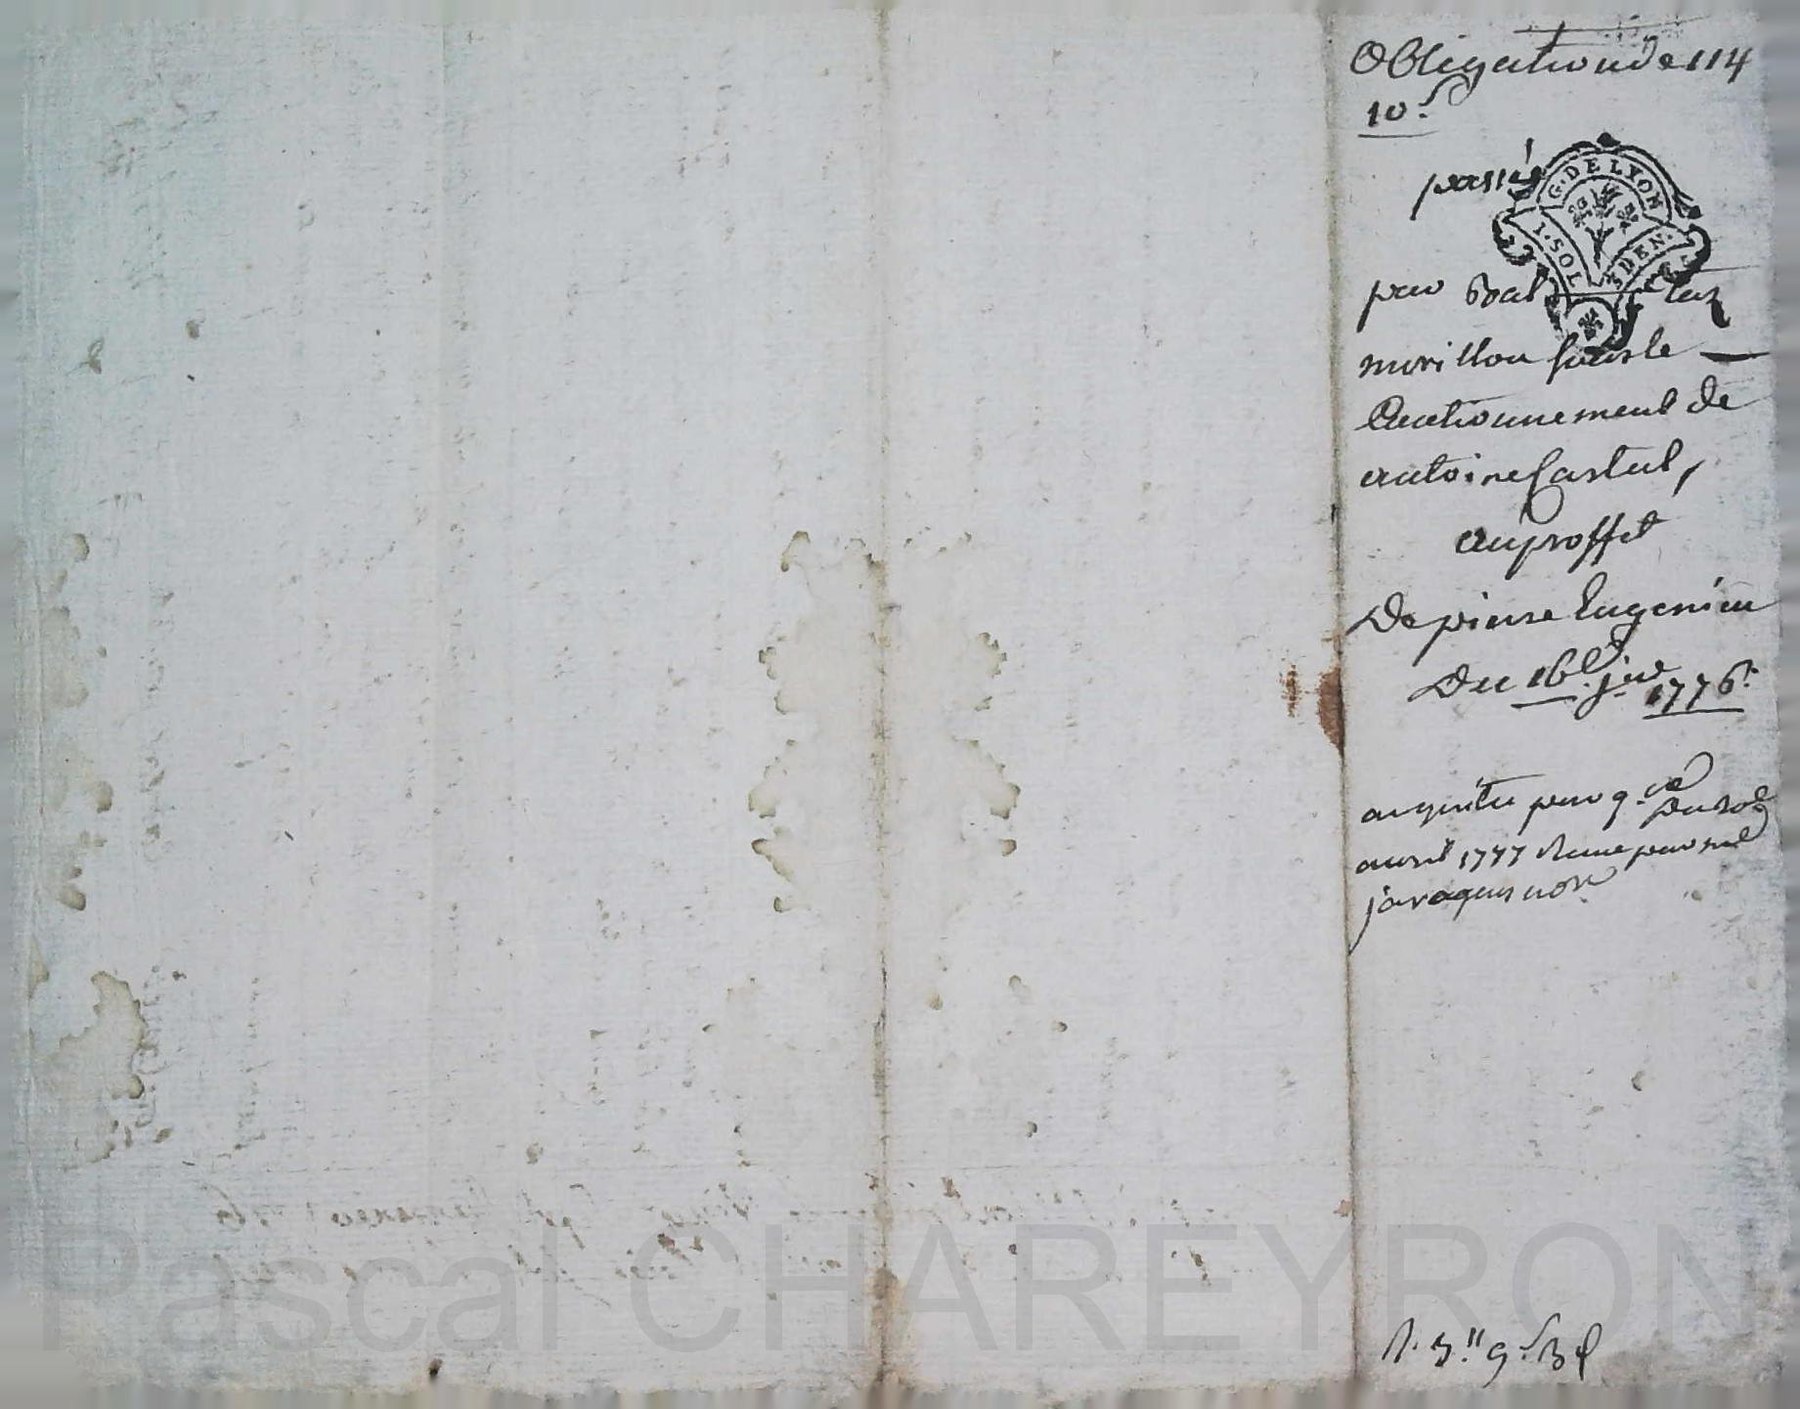 Obligation de 114
10s
passée
G. DE LYON
1. SOL 3 DEN.
par
morillon sous le
Cautionnement de
antoine Castel,
au proffit
De pierre Eugenieu
Du 16e jer 1776.
par q.ce Du 20e
avril 1777 Reçue par me
javogues nore
Pascal CHAREYRON